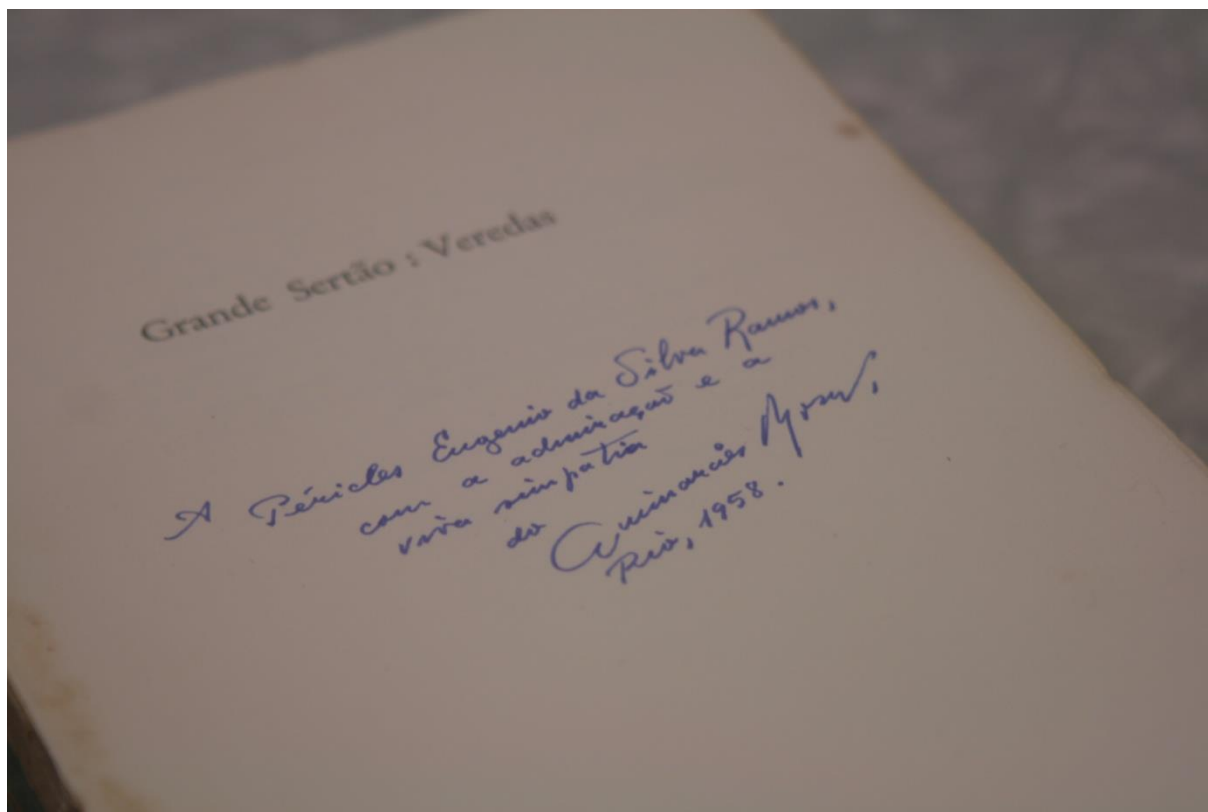 Grande Sertão : Veredas
A Péricles Eugenio da Silva Ramos,
com a admiração e a
viva simpatia
do
Guimarães Rosa,
Rio, 1958.